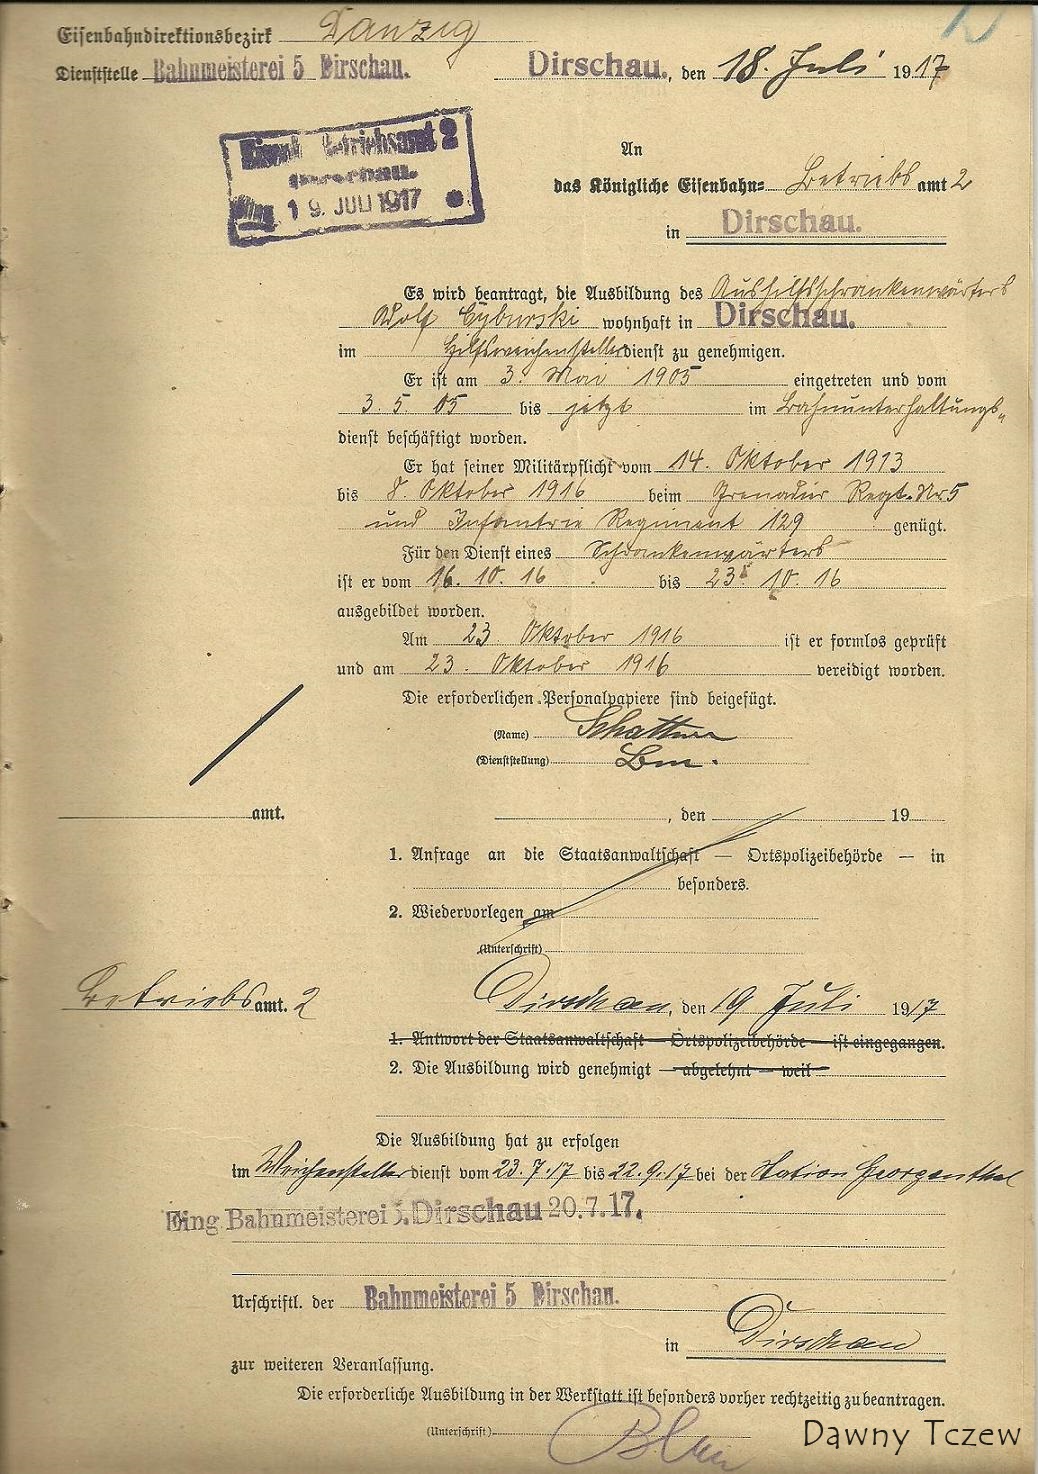 Eisenbahndirektionsbezirk Danzig
Dienststelle Bahnmeisterei 5 Dirschau.
Dirschau., den 18. Juli 1917
Dirschau.
19. JULI 1917
An
das Königliche Eisenbahn= Betriebsamt 2
in Dirschau.
Es wird beantragt, die Ausbildung des Aushilfsschrankenwärters
Adolf Cyburski wohnhaft in Dirschau.
im Hilfsweichenstellerdienst zu genehmigen.
Er ist am 3. Mai 1905 eingetreten und vom
3. 5. 05 bis jetzt im Bahnunterhaltungs„
dienst beschäftigt worden.
Er hat seiner Militärpflicht vom 14. Oktober 1913
bis 8. Oktober 1916 beim Grenadier Regt. Nr 5
und Infantrie Regiment 129 genügt.
Für den Dienst eines Schrankenwärters
ist er vom 16. 10. 16 bis 23. 10. 16
ausgebildet worden.
Am 23. Oktober 1916 ist er formlos geprüft
und am 23. Oktober 1916 vereidigt worden.
Die erforderlichen Personalpapiere sind beigefügt.
(Name)
(Dienststellung) Bm.
amt.
, den 19
1. Anfrage an die Staatsanwaltschaft — Ortspolizeibehörde — in
besonders.
2. Wiedervorlegen am
(Unterschrift)
Betriebsamt. 2
Dirschau, den 19 Juli 1917
1. Antwort der Staatsanwaltschaft — Ortspolizeibehörde — ist eingegangen.
2. Die Ausbildung wird genehmigt — abgelehnt — weil
Die Ausbildung hat zu erfolgen
im Weichenstellerdienst vom 23.7.17 bis 22.9.17 bei der Station Georgenthal
Eing. Bahnmeisterei 5. Dirschau 20.7.17.
Urschriftl. der Bahnmeisterei 5 Dirschau.
in Dirschau
zur weiteren Veranlassung.
Die erforderliche Ausbildung in der Werkstatt ist besonders vorher rechtzeitig zu beantragen.
(Unterschrift)
Dawny Tczew